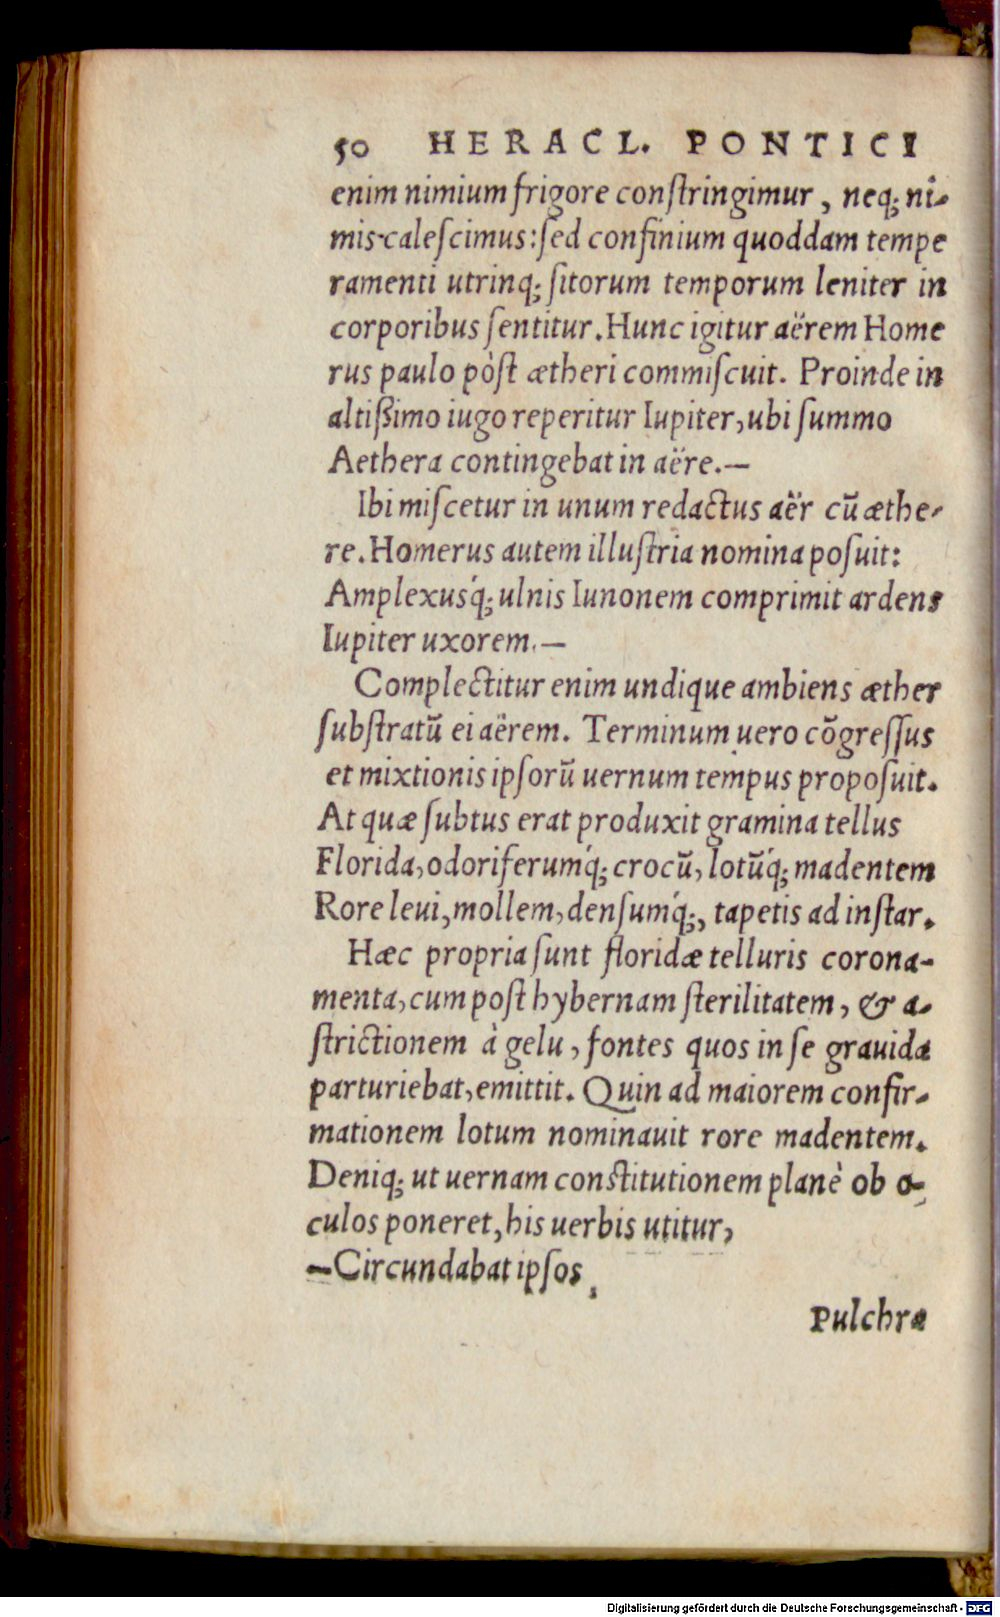 50 HERACL. PONTICI
enim nimium frigore conſtringimur, neq; ni-
mis caleſcimus: ſed confinium quoddam tempe
ramenti utrinq; ſitorum temporum leniter in
corporibus ſentitur. Hunc igitur aërem Home
rus paulo pòſt ætheri commiſcuit. Proinde in
altißimo iugo reperitur Iupiter, ubi ſummo
Aethera contingebat in aëre.—
Ibi miſcetur in unum redactus aër cū æthe-
re. Homerus autem illuſtria nomina poſuit:
Amplexusq́; ulnis Iunonem comprimit ardens
Iupiter uxorem.—
Complectitur enim undique ambiens æther
ſubſtratū ei aërem. Terminum uero cōgreſſus
et mixtionis ipſorū uernum tempus propoſuit.
At quæ ſubtus erat produxit gramina tellus
Florida, odoriferumq́; crocū, lotūq́; madentem
Rore leui, mollem, denſumq́;, tapetis ad inſtar.
Hæc propria ſunt floridæ telluris corona-
menta, cum poſt hybernam ſterilitatem, & a-
ſtrictionem à gelu, fontes quos in ſe grauida
parturiebat, emittit. Quin ad maiorem confir-
mationem lotum nominauit rore madentem.
Deniq; ut uernam conſtitutionem planè ob o-
culos poneret, his uerbis utitur,
—Circundabat ipſos
Pulchra
Digitalisierung gefördert durch die Deutsche Forschungsgemeinschaft - DFG